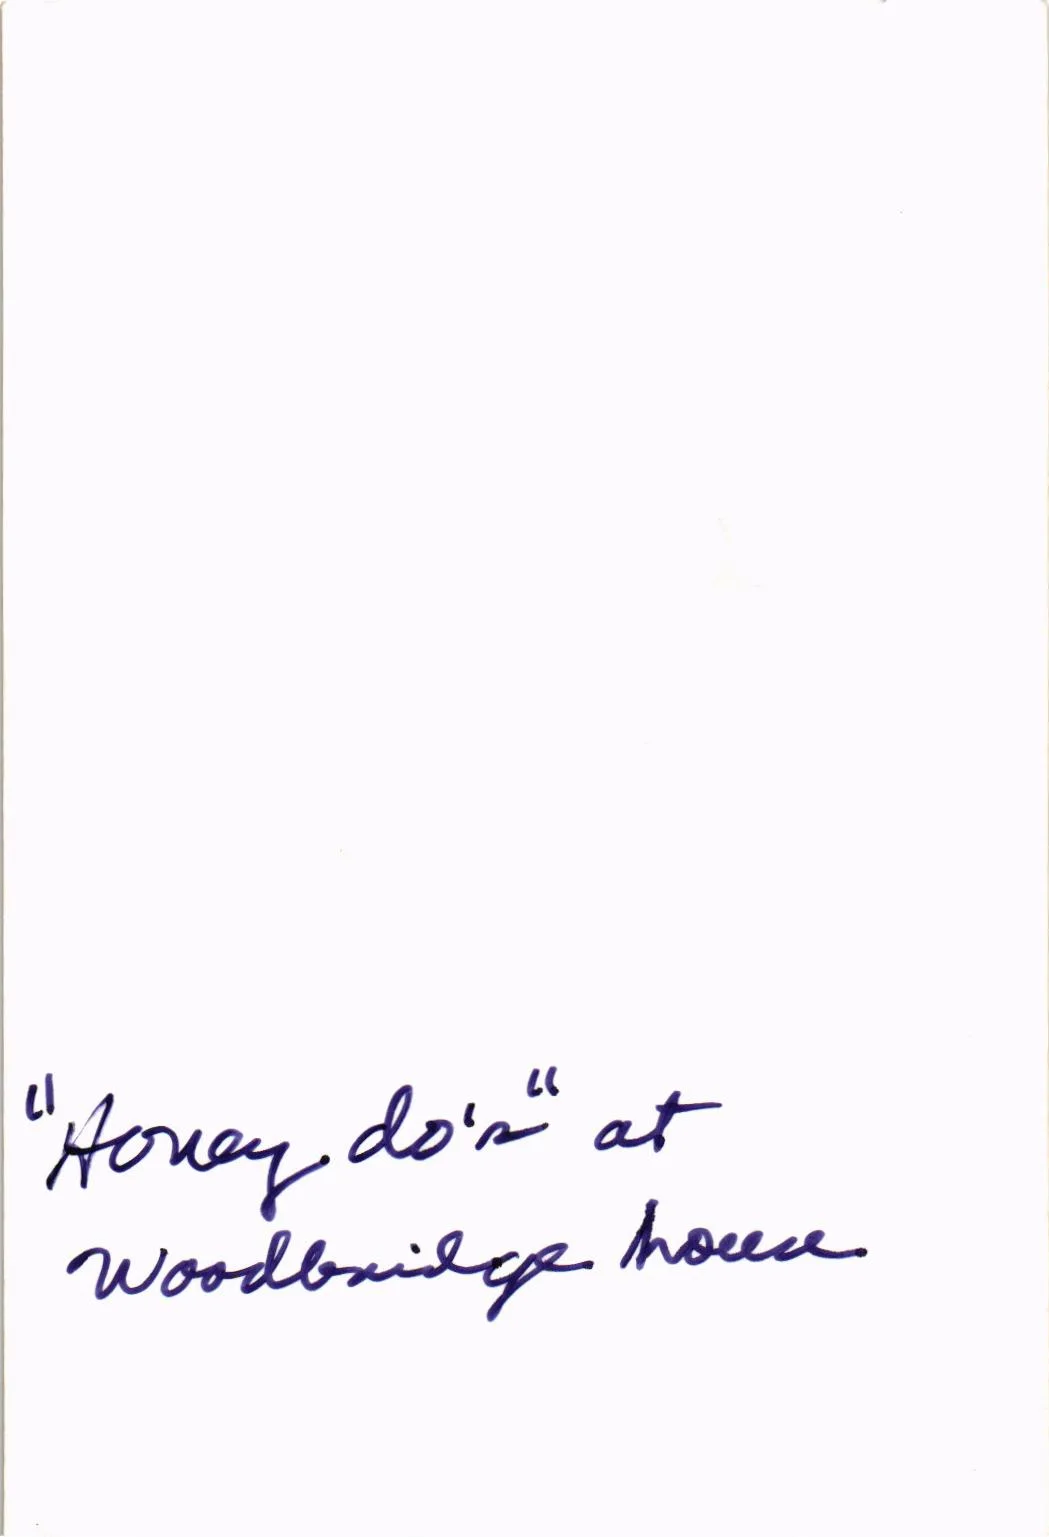 "Honey do's" at
Woodbridge house